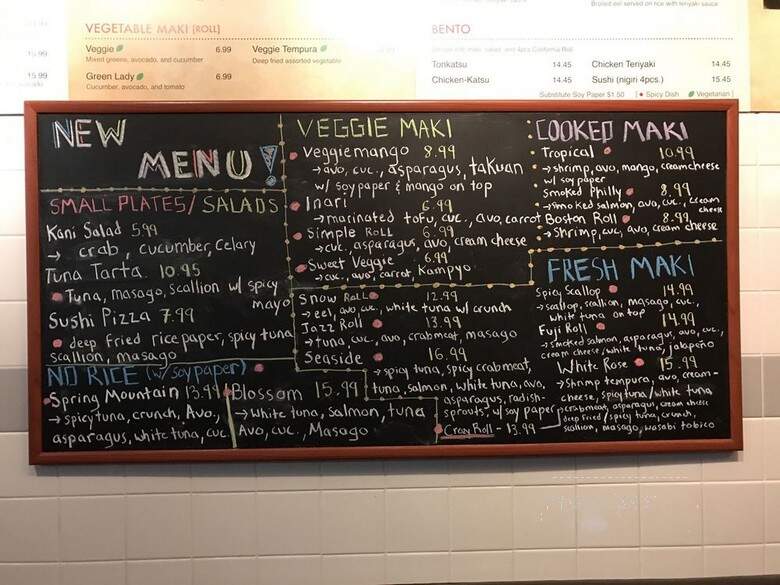 Broiled eel served on rice with teriyaki sauce
VEGETABLE MAKI [ROLL]
Veggie 6.99
Mixed greens, avocado, and cucumber
Green Lady 6.99
Cucumber, avocado, and tomato
Veggie Tempura 6.99
Deep fried assorted vegetable
15.99
15.99
BENTO
Tonkatsu 14.45
Chicken-Katsu 14.45
Chicken Teriyaki 14.45
Sushi (nigiri 4pcs.) 15.45
Substitute Soy Paper $1.50 [ Spicy Dish Vegetarian ]
NEW
MENU!
SMALL PLATES/ SALADS
Kani Salad 5.99
→ crab, cucumber, Celary
Tuna Tarta 10.95
Tuna, masago, scallion w/ spicy
mayo
Sushi Pizza 7.99
deep fried rice paper, spicy tuna
scallion, masago
NO RICE (w/ soy paper)
Spring Mountain 13.99
→ spicy tuna, crunch, Avo.,
asparagus, white tuna, cuc
Blossom 15.99
→ White tuna, Salmon, tuna
Avo, cuc., Masago
VEGGIE MAKI
Veggiemango 8.99
→ avo, cuc., asparagus, takuan
w/ soy paper & mango on top
Inari 6.99
→ marinated tofu, cuc., avo, carrot
Simple Roll 6.99
→ cuc, asparagus, avo, cream cheese
Sweet Veggie 6.99
→ cuc, avo, carrot, Kampyo
Snow Roll 12.99
→ eel, avo cuc., white tuna w/ crunch
Jazz Roll 13.99
→ tuna, cuc., avo, crabmeat, masago
Seaside 16.99
→ spicy tuna, spicy crabmeat,
tuna, salmon, white tuna, avo,
asparagus, radish-
sprouts, w/ soy paper
Cray Roll - 13.99
→ crabmeat, asparagus, cream cheese
deep fried / spicy tuna, crunch,
scallion, masago, wasabi tobico
COOKED MAKI
Tropical 10.99
→ shrimp, avo, mango, creamcheese
w/ soy paper
Smoked Philly 8.99
→ smoked salmon, avo, cuc., cream
cheese
Boston Roll 8.99
→ Shrimp, cuc, avo, cream cheese
FRESH MAKI
Spicy Scallop 14.99
→ scallop, scallion, masago, cuc.,
white tuna on top
Fuji Roll 14.99
→ smoked salmon, asparagus, avo, cuc.,
cream cheese/white tuna, jalapeño
White Rose 15.99
→ Shrimp tempura, avo, cream-
cheese, spicy tuna/white tuna